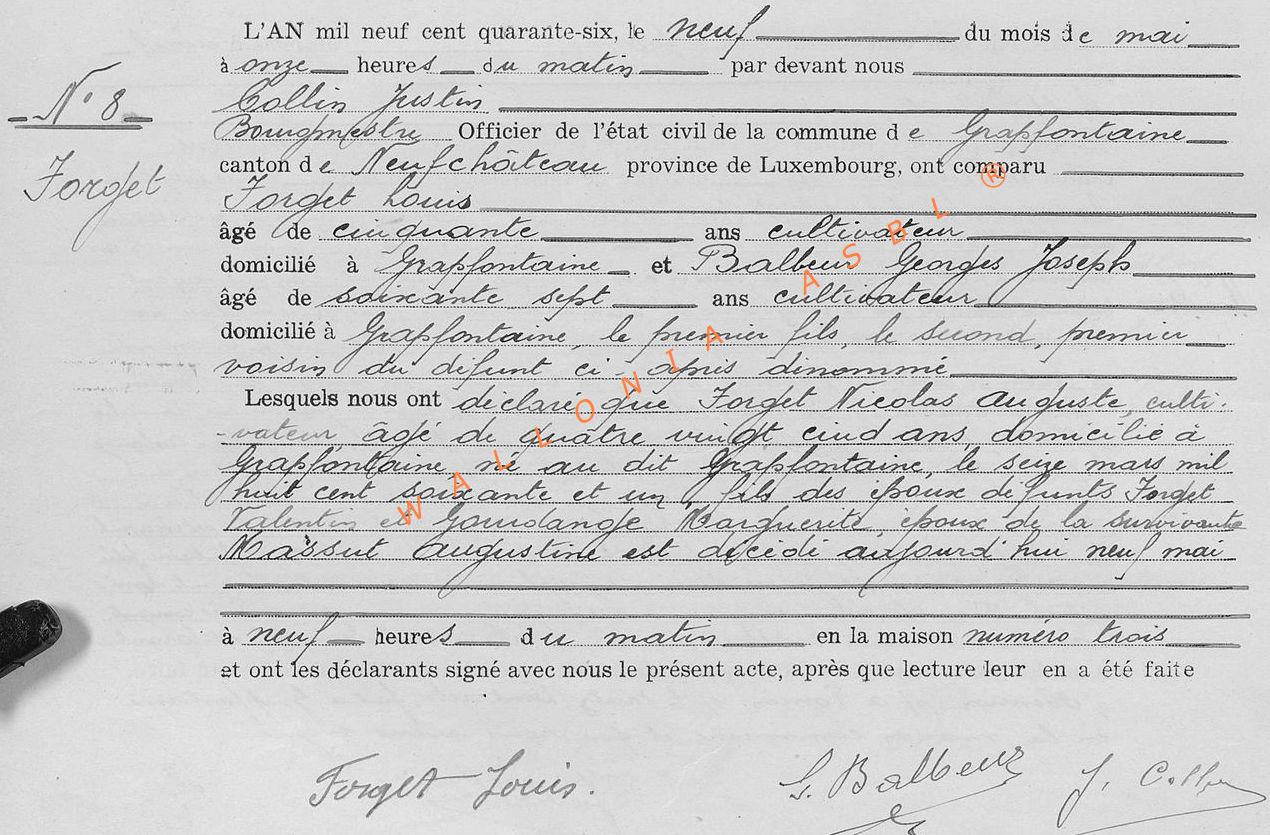 L'AN mil neuf cent quarante-six, le neuf du mois de mai
à onze heures du matin par devant nous
N° 8
Collin Justin
Bourgmestre Officier de l'état civil de la commune de Grapfontaine
canton de Neufchâteau province de Luxembourg, ont comparu
Forget
Forget Louis
âgé de cinquante ans cultivateur
domicilié à Grapfontaine et Balbeur Georges Joseph
âgé de soixante sept ans cultivateur
domicilié à Grapfontaine, le premier fils, le second, premier
voisin du défunt ci-après dénommé
Lesquels nous ont déclaré que Forget Nicolas Auguste, culti-
-vateur, âgé de quatre vingt cinq ans, domicilié à
Grapfontaine, né au dit Grapfontaine, le seize mars mil
huit cent soixante et un, fils des époux défunts Forget
Valentin et Gourdange Marguerite époux de la survivante
Massut Augustine est décédé aujourd'hui neuf mai
à neuf heures du matin en la maison numéro trois
et ont les déclarants signé avec nous le présent acte, après que lecture leur en a été faite
Forget Louis.
G. Balbeur
J. Collin
WALLONIA ASBL ®